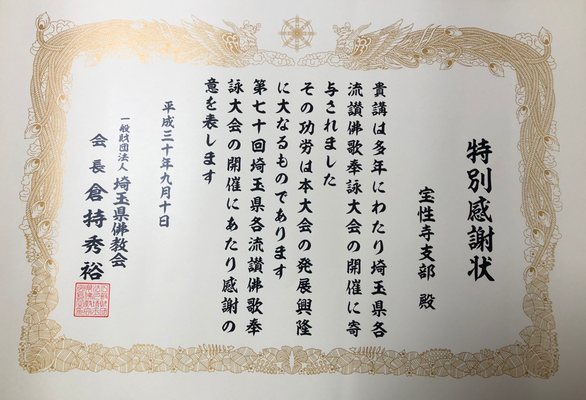 特別感謝状
宝性寺支部 殿
貴講は多年にわたり埼玉県各
流讃佛歌奉詠大会の開催に寄
与されました
その功労は本大会の発展興隆
に大なるものであります
第七十回埼玉県各流讃佛歌奉
詠大会の開催にあたり感謝の
意を表します
平成三十年九月十日
一般財団法人 埼玉県佛教会
会長 倉持秀裕